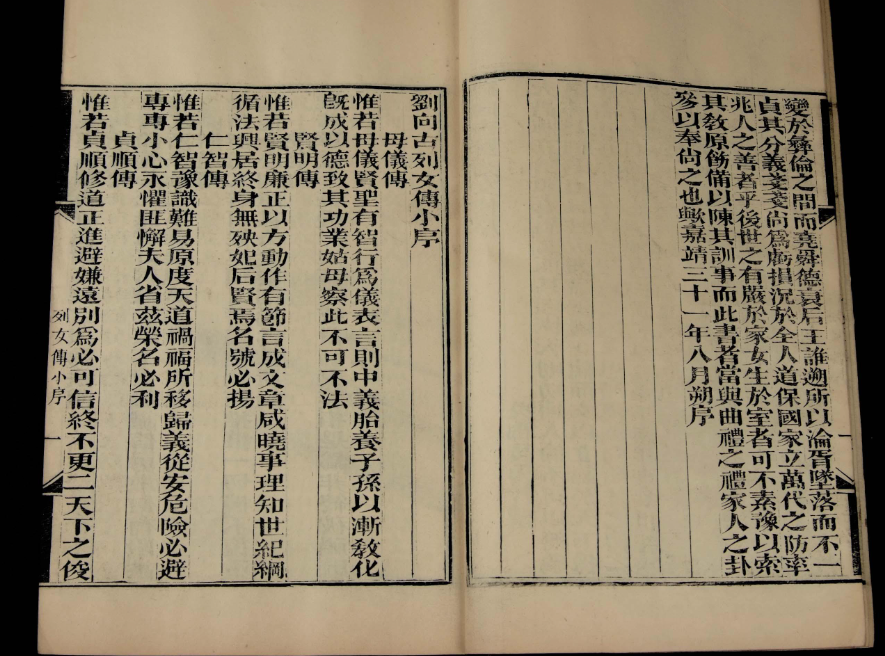 變於彝倫之間而堯舜德衰后王誰遡所以淪胥墜落而不一
貞其分義芟芟尚爲虧損況於全人道保國家立萬代之防率
兆人之善者乎後世之有嚴於家女生於室者可不素豫以索
其敎原飭備以陳其訓事而此書者當與曲禮之禮家人之卦
參以奉尚之也歟嘉靖三十一年八月朔序
劉向古列女傳小序
母儀傳
惟若母儀賢聖有智行爲儀表言則中義胎養子孫以漸敎化
旣成以德致其功業姑母察此不可不法
賢明傳
惟若賢明廉正以方動作有節言成文章咸曉事理知世紀綱
循法興居終身無殃妃后賢焉名號必揚
仁智傳
惟若仁智豫識難易原度天道禍福所移歸義從安危險必避
專專小心永懼匪懈夫人省茲榮名必利
貞順傳
惟若貞順修道正進避嫌遠別爲必可信終不更二天下之俊
列女傳小序
一